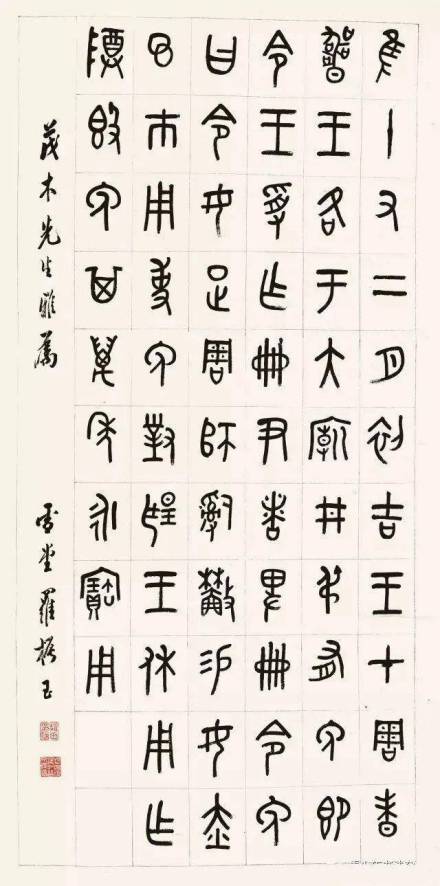 隹十又二月初吉王才周昧
爽王各于大廟井弔有免即
令王受乍冊尹者卑冊令免
曰令女疋周師𤔲歗易女赤
巿用事免對揚王休用乍
尊𣪘免其萬年永寶用
茂木先生雅屬
雪堂羅振玉